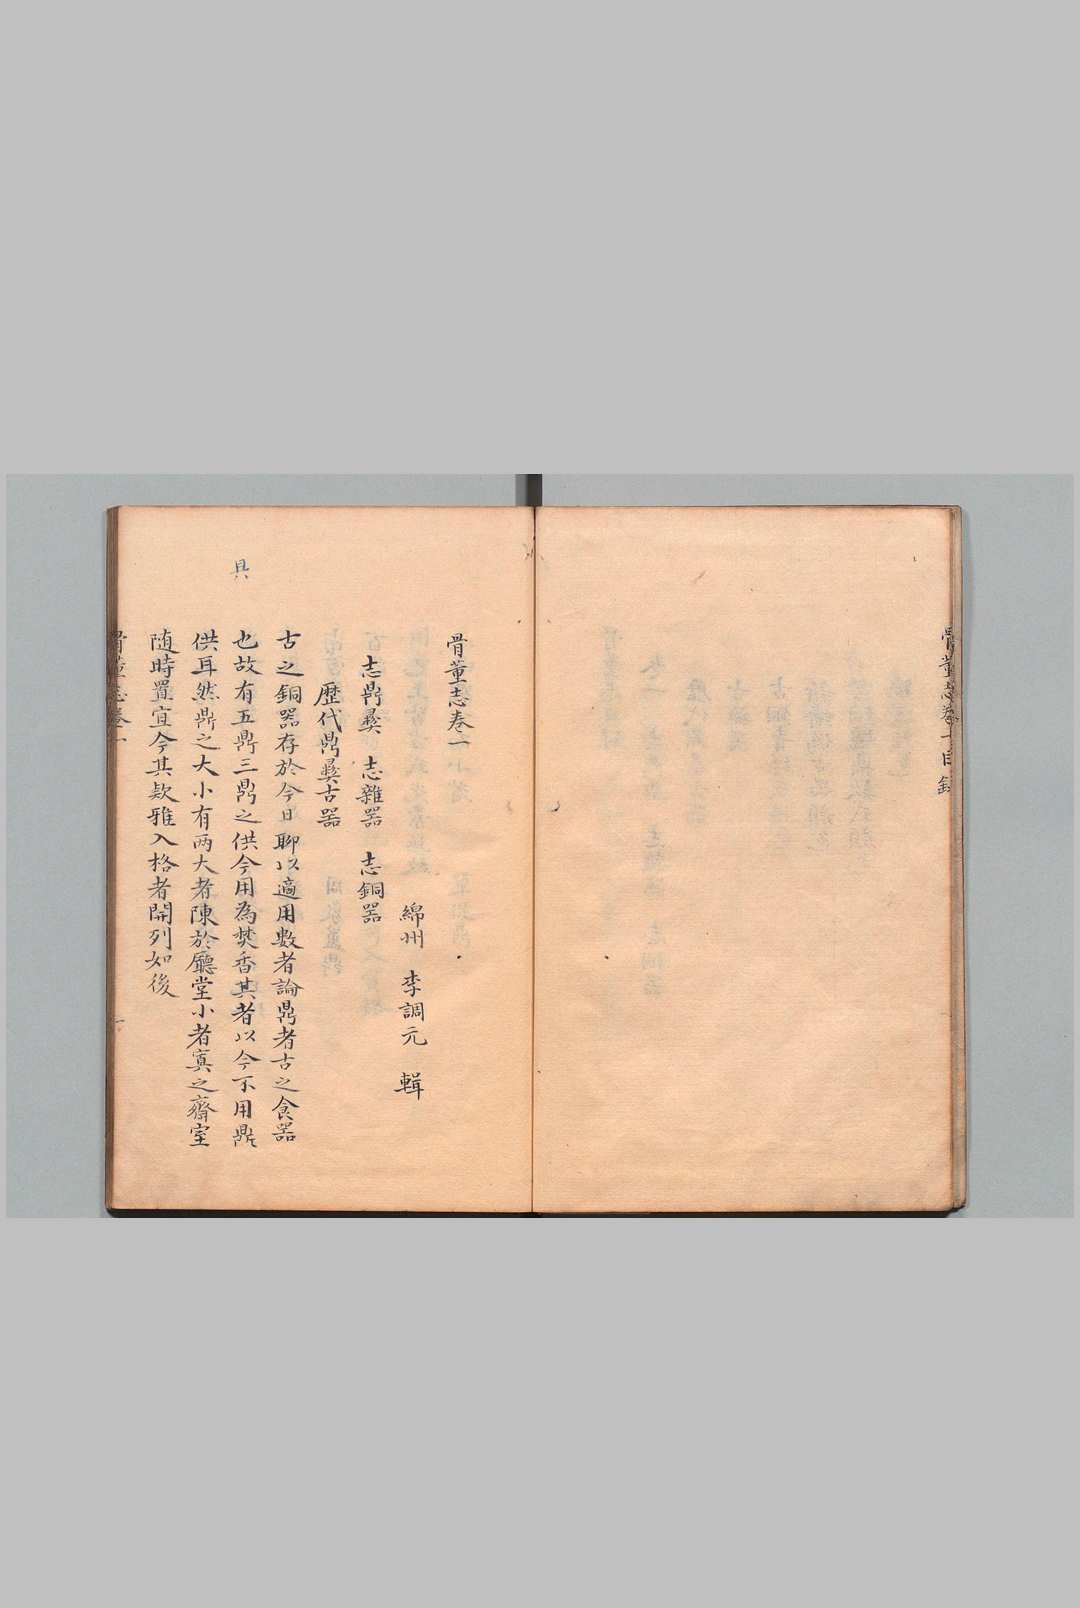 骨董志卷一目錄
骨董志卷一
綿州 李調元 輯
志鼎彝 志雜器 志銅器
歷代鼎彝古器
古之銅器存於今日聊以適用數者論鼎者古之食器
也故有五鼎三鼎之供今用為焚香其者以今不用鼎
具
供耳然鼎之大小有两大者陳於廳堂小者寘之齋室
随時置宜今其欵雅入格者開列如後
骨董志卷一
一